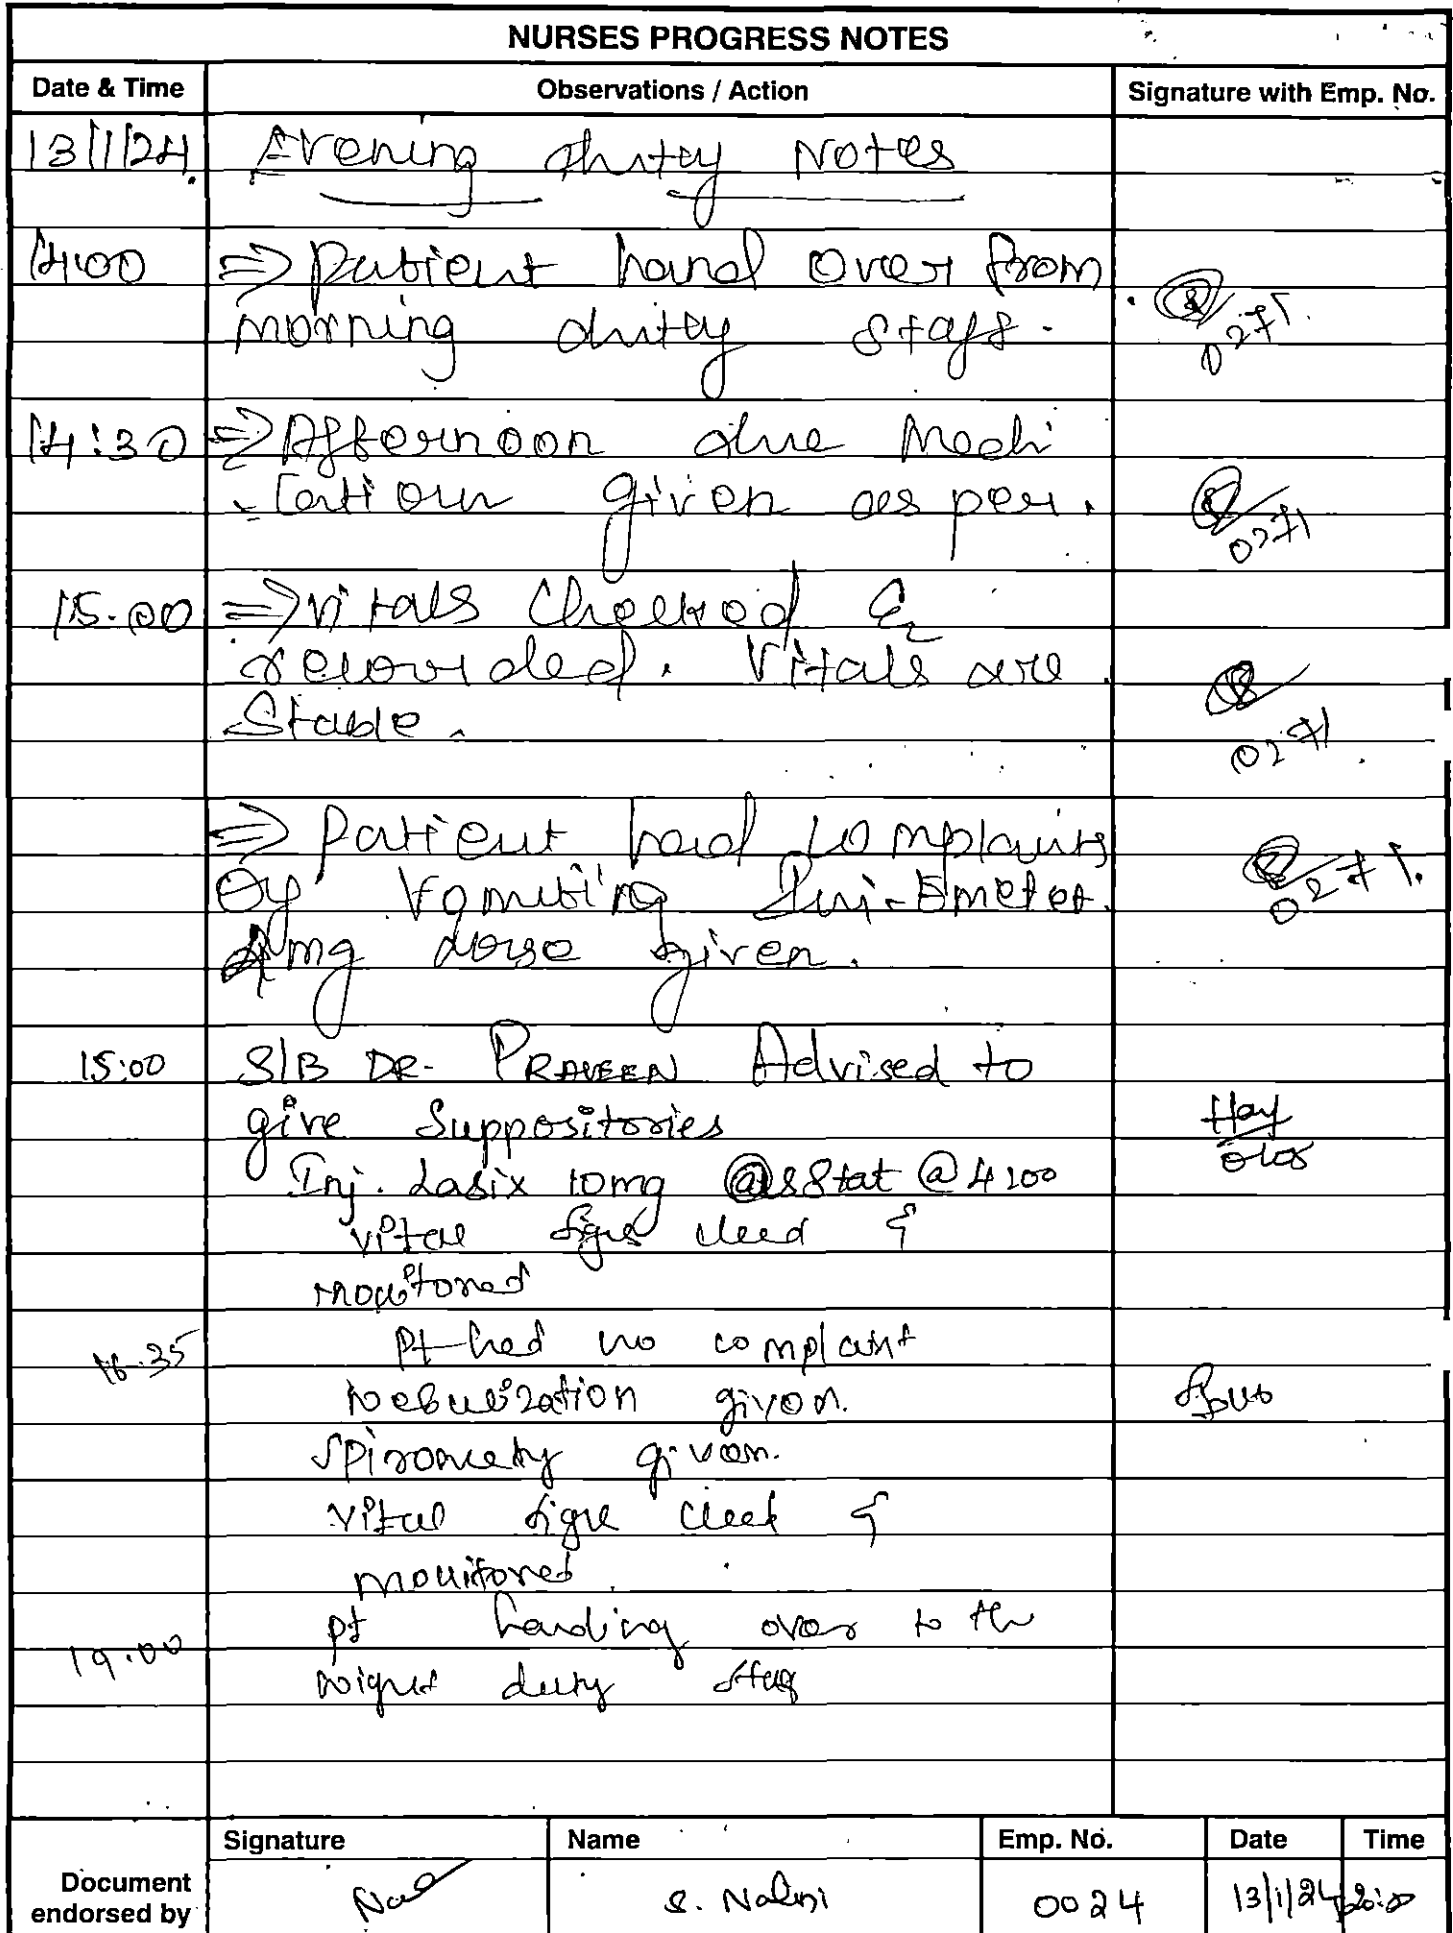 NURSES PROGRESS NOTES
Date & Time Observations / Action Signature with Emp. No.
13/1/24 Evening duty Notes
14:00 => patient hand over from
morning duty staff.
0271.
14:30 => Afternoon due Medi
-cation given as per.
0271
15.00 => Vitals Checked &
recorded. Vitals are
Stable.
0271
=> Patient had complaints
of Vomiting Inj-Emeset
4mg dose given.
0271.
15:00 S/B DR. PRAVEEN Advised to
give Suppositories
Inj. Lasix 10mg stat @ 4:00
vital signs &
monitored
16.35 Pt had no complaint
Nebulization given.
Spirometry given.
vital sign check &
monitored.
19.00 pt handing over to the
night duty staff
Signature Name Emp. No. Date Time
Document
endorsed by S. Nalini 0024 13/1/24